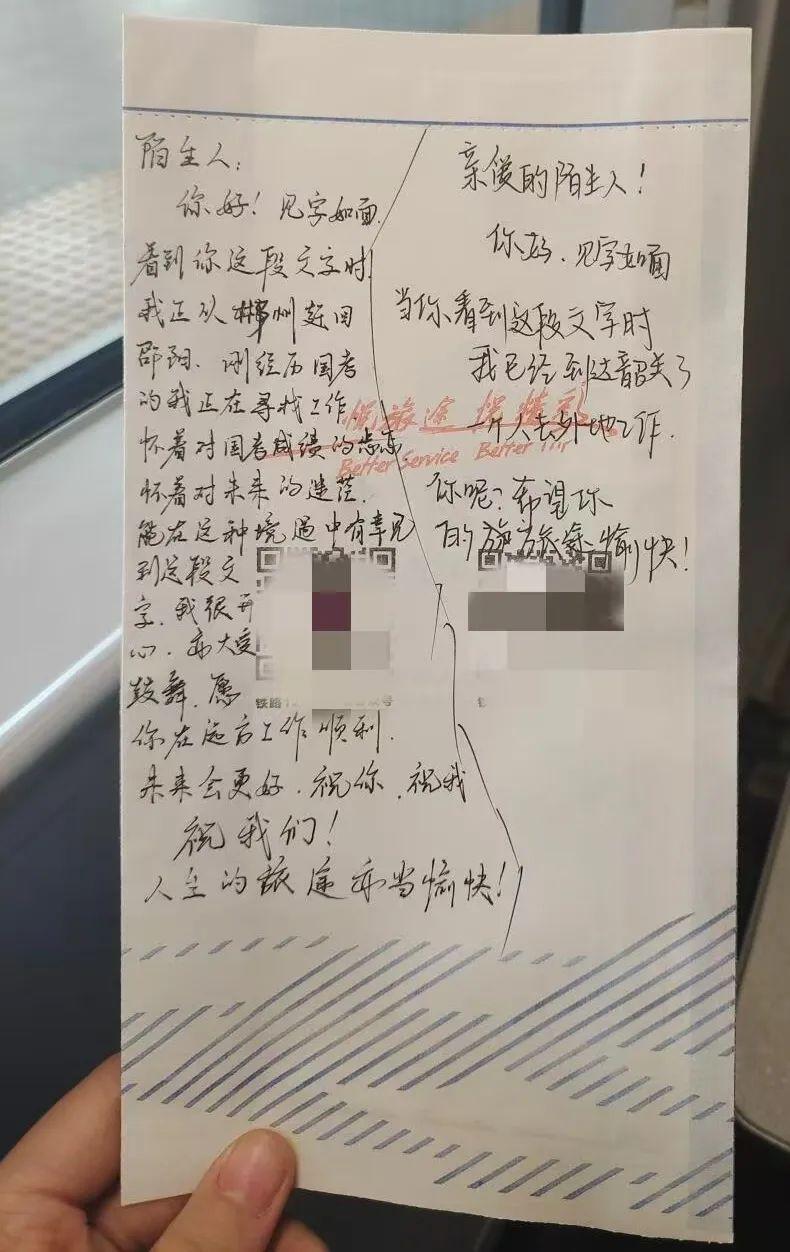 陌生人:
你好! 见字如面.
看到你这段文字时
我正从郴州赶回
邵阳. 刚经历国考
的我正在寻找工作.
怀着对国考成绩的忐忑
怀着对未来的迷茫.
能在这种境遇中有幸见
到这段文
字. 我很开
心. 亦大受
鼓舞. 愿
你在远方工作顺利.
未来会更好. 祝你. 祝我
祝我们!
人生的旅途亦当愉快!
亲爱的陌生人!
你好. 见字如面
当你看到这段文字时
我已经到达韶关了
一个人去外地工作.
你呢? 希望你
的旅途愉快!
悦旅途
Better Service Better
铁路1
号